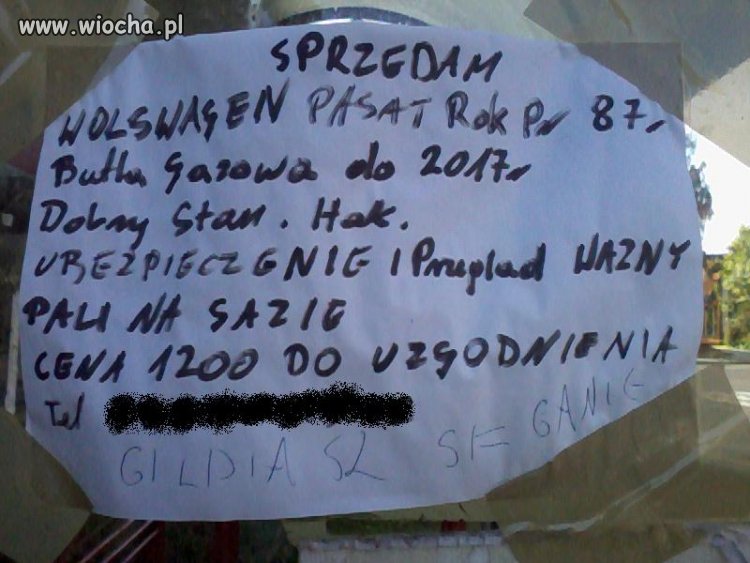 www.wiocha.pl
SPRZEDAM
WOLSWAGEN PASAT Rok Pr 87r
Butla Gazowa do 2017r
Dobry Stan. Hak.
UBEZPIECZENIE i Przeglad WAZNY
PALI NA GAZIE
CENA 1200 DO UZGODNIENIA
Tel
GILDIA